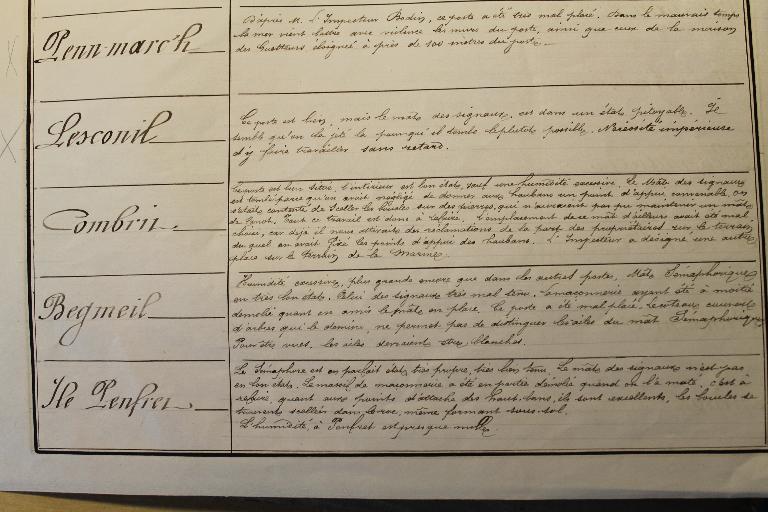 Penn-march
D'après M. l'Inspecteur Bodin, ce poste a été très mal placé. Dans le mauvais temps
la mer vient battre avec violence les murs du poste, ainsi que ceux de la maison
des Guetteurs éloignée à près de 100 mètres du poste.
Lesconil
Ce poste est bien, mais le mâts des signaux, est dans un état pitoyable. Il
semble qu'on l'a jeté là pour qu'il tombe le plutôt possible. Nécéssité impérieuse
d'y faire travailler sans retard.
Combrit
Ce poste est bien situé, l'intérieur est bon état, sauf une humidité excessive. Le Mâts des signaux
est tombé parce qu'on avait négligé de donner aux haubans un point d'appui convenable, on
s'était contenté de sceller les boucles sur des pierres, qui n'auraient pas pu maintenir un mât
de Canot. Tout ce travail est donc à refaire. L'emplacement de ce mât d'ailleurs avait été mal
choisi, car déjà il nous attirait des réclamations de la part des propriétaires sur le terrain
du quel on avait fixé les points d'appui des haubans. L'Inspecteur a désigné une autre
place sur le terrain de la Marine.
Begmeil
Humidité excessive, plus grande encore que dans les autres postes. Mâts Sémaphorique
en très bon état. Celui des signaux très mal tenu. La maçonnerie ayant été à moitié
démolie quand on a mis le mâts en place. Ce poste a été mal placé. Le rideau
d'arbres qui le domine, ne permet pas de distinguer les ailes du mât Sémaphorique
Pour être vues, les ailes devraient être blanches.
Ile Penfret
Le Sémaphore est en parfait état, très propre, très bien tenu. Le mâts des signaux n'est pas
en bon état. Le massif de maçonnerie a été en partie démolie quand on l'a mâté. C'est à
refaire, quant aux points d'attache des haut-bans, ils sont excellents, les boucles se
trouvent scellées dans le roc, même formant sous-sol.
L'humidité, à Penfret est presque nulle.